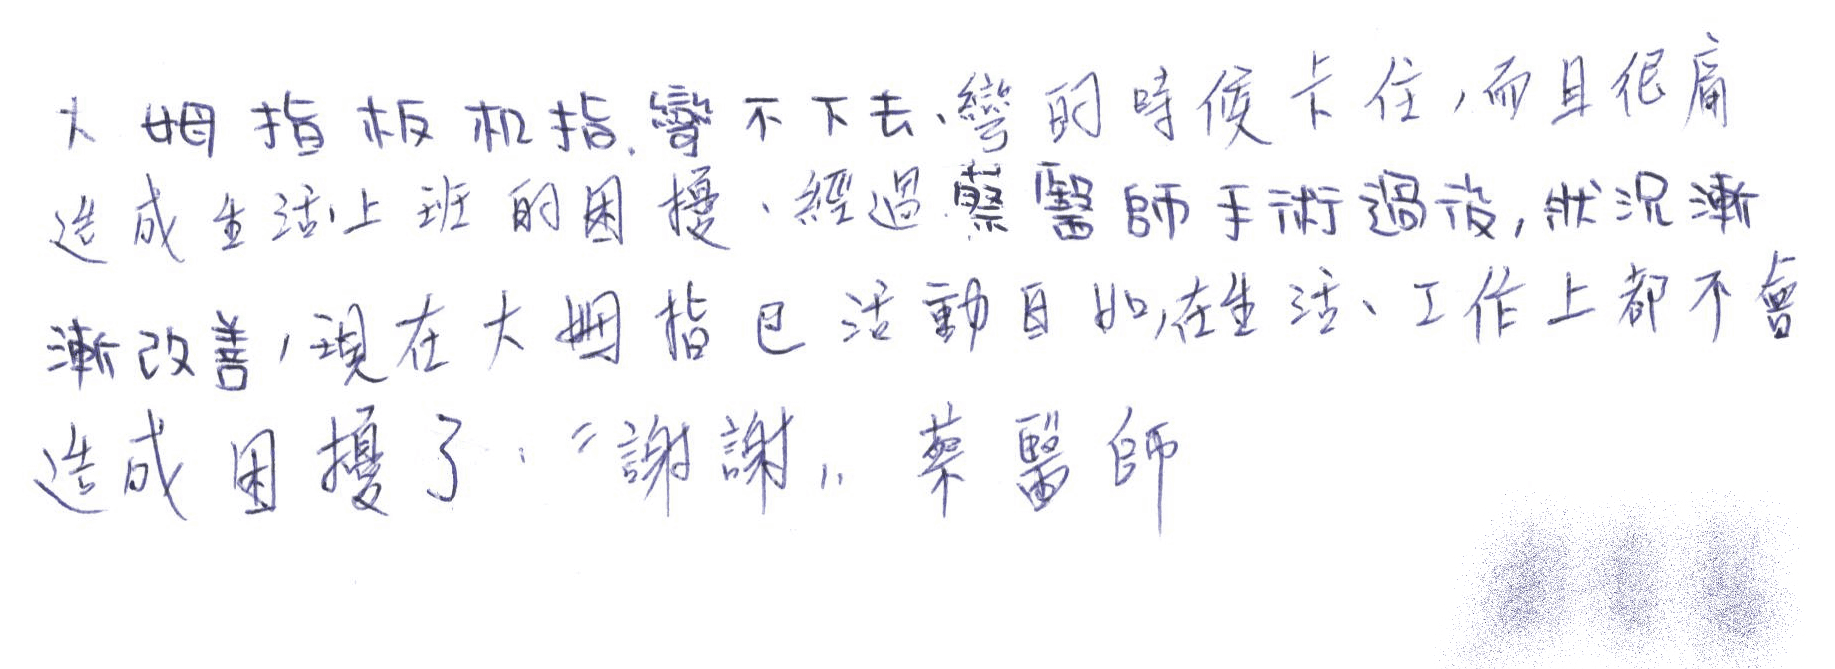 大姆指板机指.彎不下去、彎的時候卡住,而且很痛
造成生活上班的困擾、經過蔡醫師手術過後,狀況漸
漸改善,現在大姆指已活動自如,在生活、工作上都不會
造成困擾了.“謝謝”蔡醫師